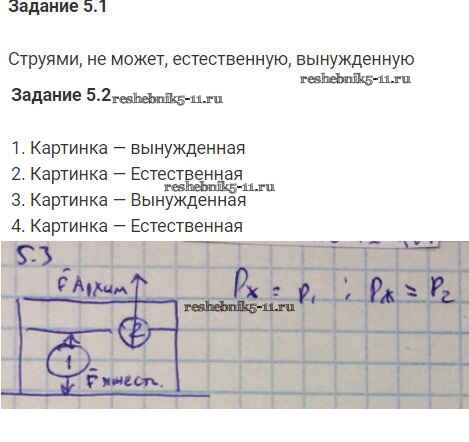 Задание 5.1
Струями, не может, естественную, вынужденную
reshebnik5-11.ru
Задание 5.2
reshebnik5-11.ru
1. Картинка — вынужденная
2. Картинка — Естественная
reshebnik5-11.ru
3. Картинка — Вынужденная
4. Картинка — Естественная
5.3
F Архим
Pж = P1 ; Pж = P2
reshebnik5-11.ru
2
1
F тяжест.